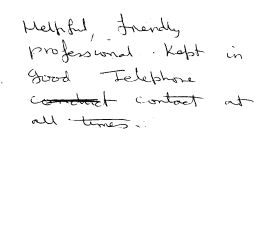 Helpful, friendly
professional. Kept in
good Telephone
contact at
all times..